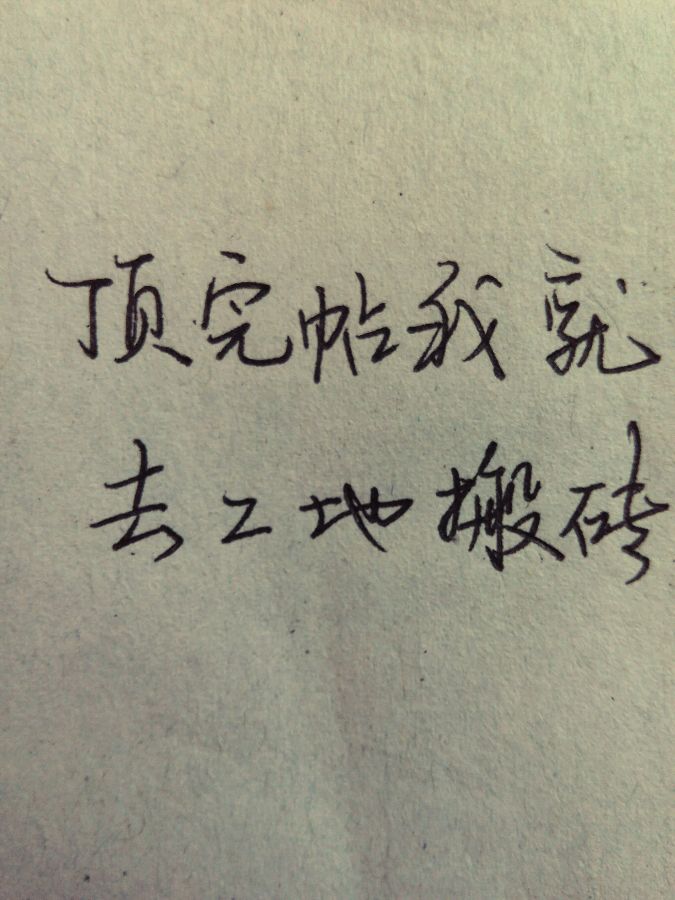 顶完帖我就
去工地搬砖